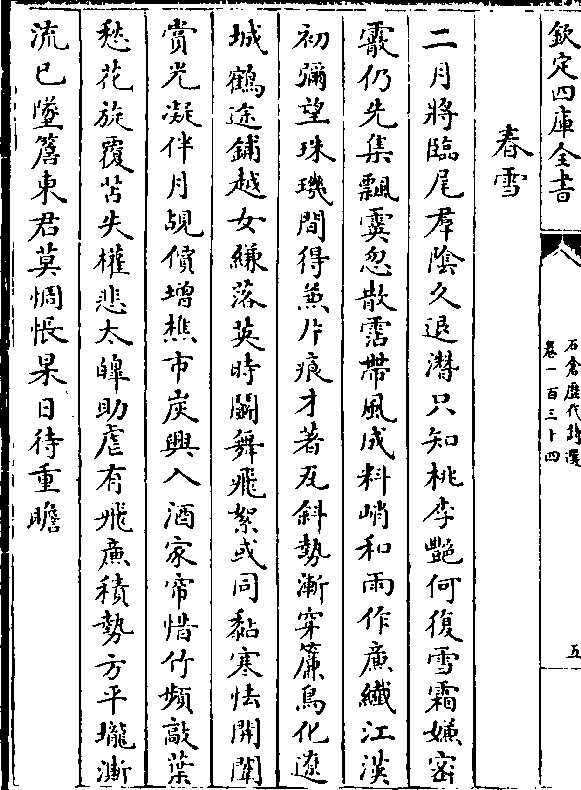 欽定四庫全書
石倉歴代詩選
卷一百三十四
五
春雪
二月將臨尾羣陰久退潛只知桃李艷何復雪霜嫌密
霰仍先集飄霙忽散霑帶風成料峭和雨作廉纖江漢
初彌望珠璣間得兼片痕才著瓦斜勢漸穿簾鳥化遼
城鶴途鋪越女縑落英時鬭舞飛絮或同黏寒怯開闈
賞光凝伴月覘價增樵市炭興入酒家帘惜竹頻敲葉
愁花旋覆苫失權悲太皥助虐有飛廉積勢方平壠漸
流已墜簷東君莫惆悵杲日待重瞻